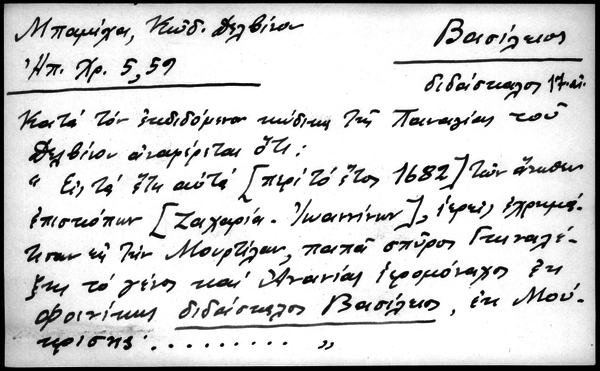 Μπαμίχα, Κώδ. Δελβίνου
Βασίλειος
Ἠπ. Χρ. 5, 59
διδάσκαλος 17 αἰ.
Κατὰ τὸν ἐκδιδόμενον κώδικα τῆς Παναγίας τοῦ
Δελβίνου ἀναφέρεται ὅτι:
" Εἰς τὰ ἔτη αὐτὰ [περὶ τὸ ἔτος 1682] τῶν ἄνωθεν
ἐπισκόπων [Ζαχαρία - Ἰωαννίνων], ἱερεῖς ἐχρημά-
τισαν εἰς τὴν Μουρτζίαν, παπᾶ σπῦρος Γκιναλέ-
ξης τὸ γένος καὶ Ἀνανίας ἱερομόναχος ἐκ
Φοινίκης διδάσκαλος Βασίλειος, ἐκ Μού-
κρισης . . . . . . . . . "